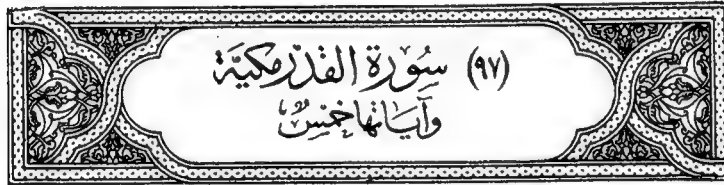 (٩٧) سُوْرَة القَدْرِ مَكِيَّة
وَآيَاتُهَا خَمْسٌ